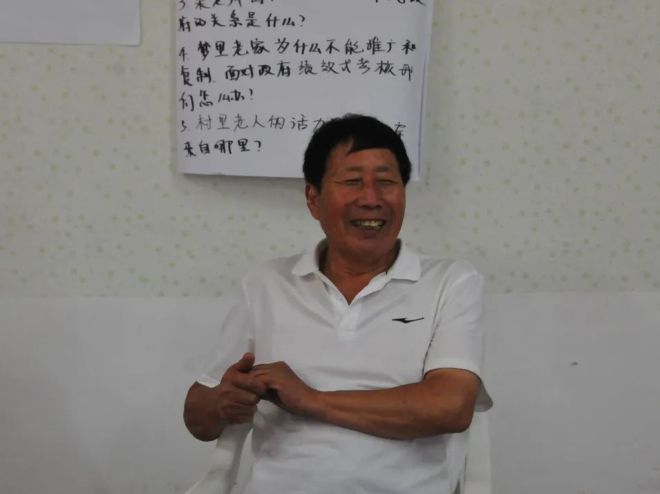 府的关系是什么?
4. 梦里老家为什么不能推广和
复制. 面对政府绩效式考核我
们怎么办?
5. 村里老人的活力
来自哪里?